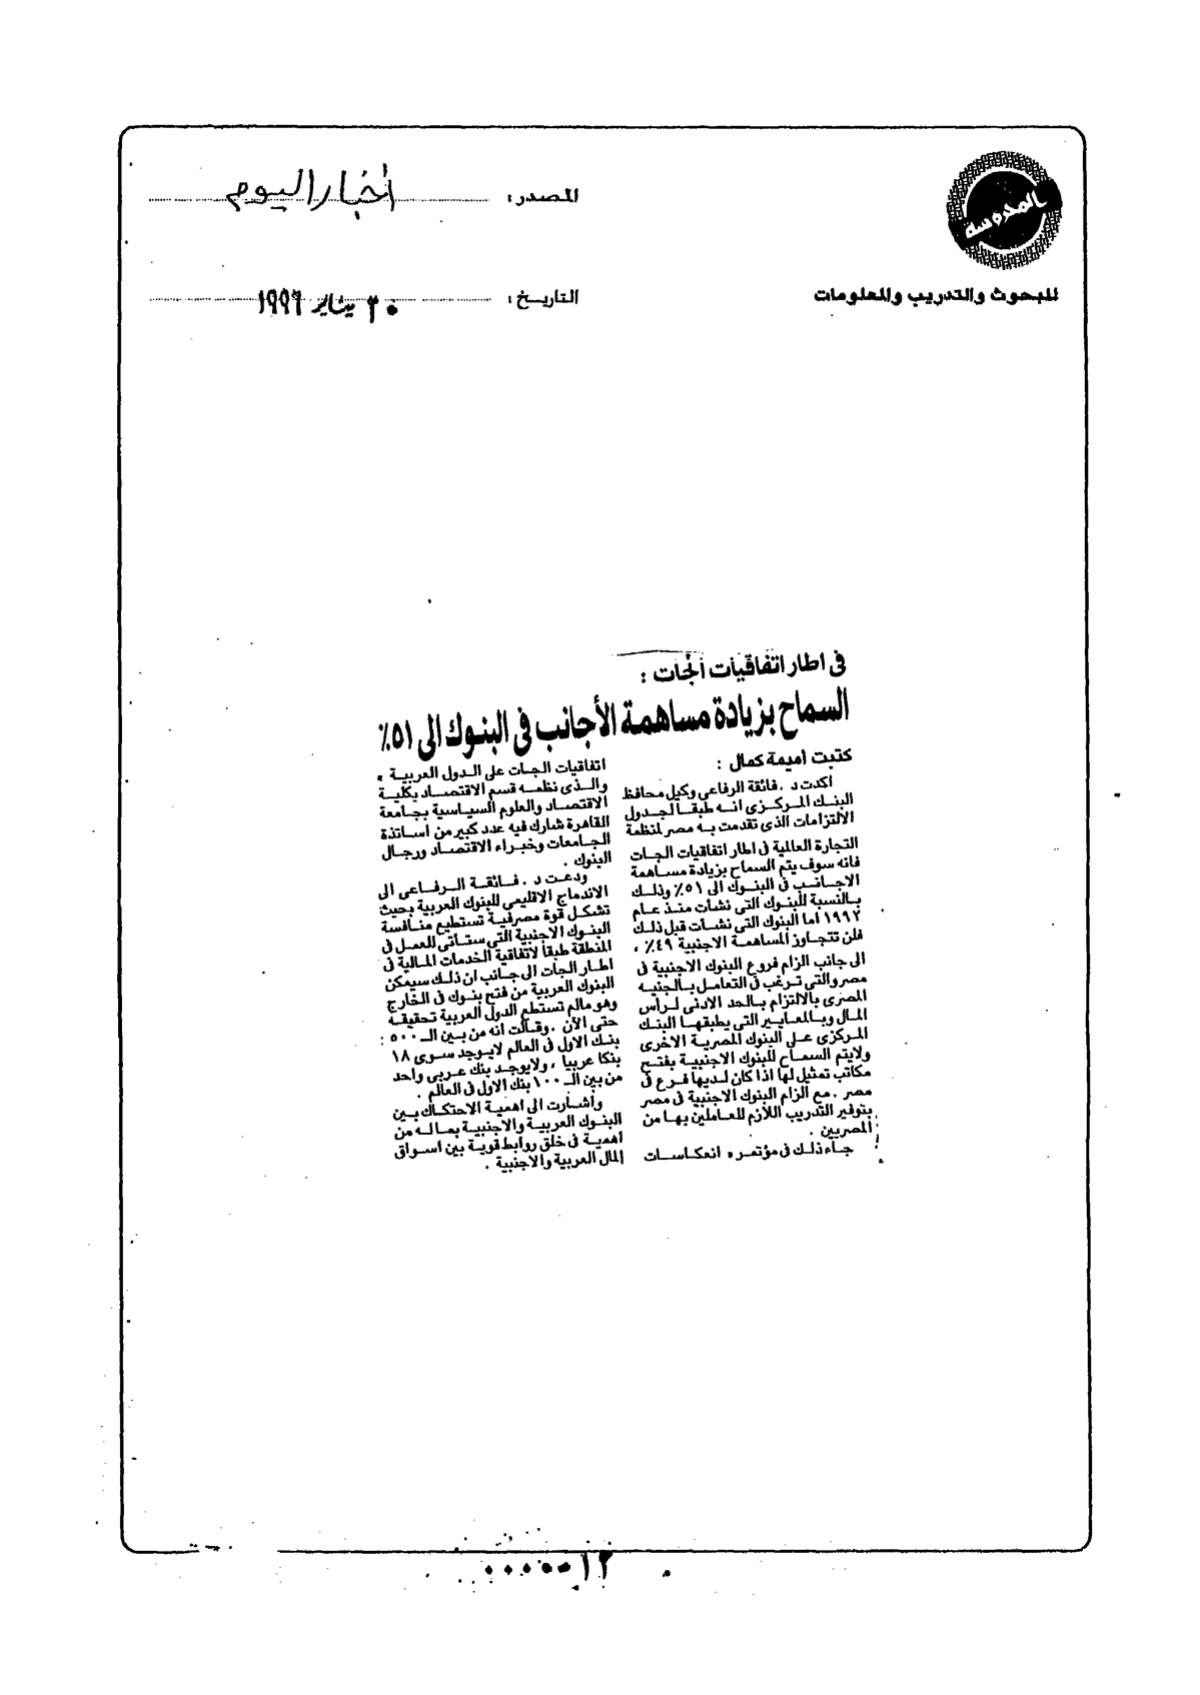 المدروسة
للبحوث والتدريب والمعلومات
المصدر: أخبار اليوم
التاريخ: ٣٠ يناير ١٩٩٦
فى اطار اتفاقيات الجات :
السماح بزيادة مساهمة الأجانب فى البنوك الى ٥١٪
كتبت اميمة كمال :
أكدت د . فائقة الرفاعى وكيل محافظ
البنك المركزى انه طبقا لجدول
الالتزامات الذى تقدمت به مصر لمنظمة
التجارة العالمية فى اطار اتفاقيات الجات
فانه سوف يتم السماح بزيادة مساهمة
الاجانب فى البنوك الى ٥١٪ وذلك
بالنسبة للبنوك التى نشأت منذ عام
١٩٩٢ اما البنوك التى نشأت قبل ذلك
فلن تتجاوز المساهمة الاجنبية ٤٩٪ ،
الى جانب الزام فروع البنوك الاجنبية فى
مصر والتى ترغب فى التعامل بالجنيه
المصرى بالالتزام بالحد الادنى لرأس
المال وبالمعايير التى يطبقها البنك
المركزى على البنوك المصرية الاخرى
ولايتم السماح للبنوك الاجنبية بفتح
مكاتب تمثيل لها اذا كان لديها فرع فى
مصر . مع الزام البنوك الاجنبية فى مصر
بتوفير التدريب اللازم للعاملين بها من
المصريين .
جاء ذلك فى مؤتمر « انعكاسات
اتفاقيات الجات على الدول العربية »
والذى نظمه قسم الاقتصاد بكلية
الاقتصاد والعلوم السياسية بجامعة
القاهرة شارك فيه عدد كبير من اساتذة
الجامعات وخبراء الاقتصاد ورجال
البنوك .
ودعت د . فائقة الرفاعى الى
الاندماج الاقليمى للبنوك العربية بحيث
تشكل قوة مصرفية تستطيع منافسة
البنوك الاجنبية التى ستأتى للعمل فى
المنطقة طبقا لاتفاقية الخدمات المالية فى
اطار الجات الى جانب ان ذلك سيمكن
البنوك العربية من فتح بنوك فى الخارج
وهو مالم تستطع الدول العربية تحقيقه
حتى الآن . وقالت انه من بين الـ ٥٠٠
بنك الاول فى العالم لايوجد سوى ١٨
بنكا عربيا ، ولايوجد بنك عربى واحد
من بين الـ ١٠٠ بنك الاول فى العالم .
وأشارت الى اهمية الاحتكاك بين
البنوك العربية والاجنبية بماله من
اهمية فى خلق روابط قوية بين اسواق
المال العربية والاجنبية .